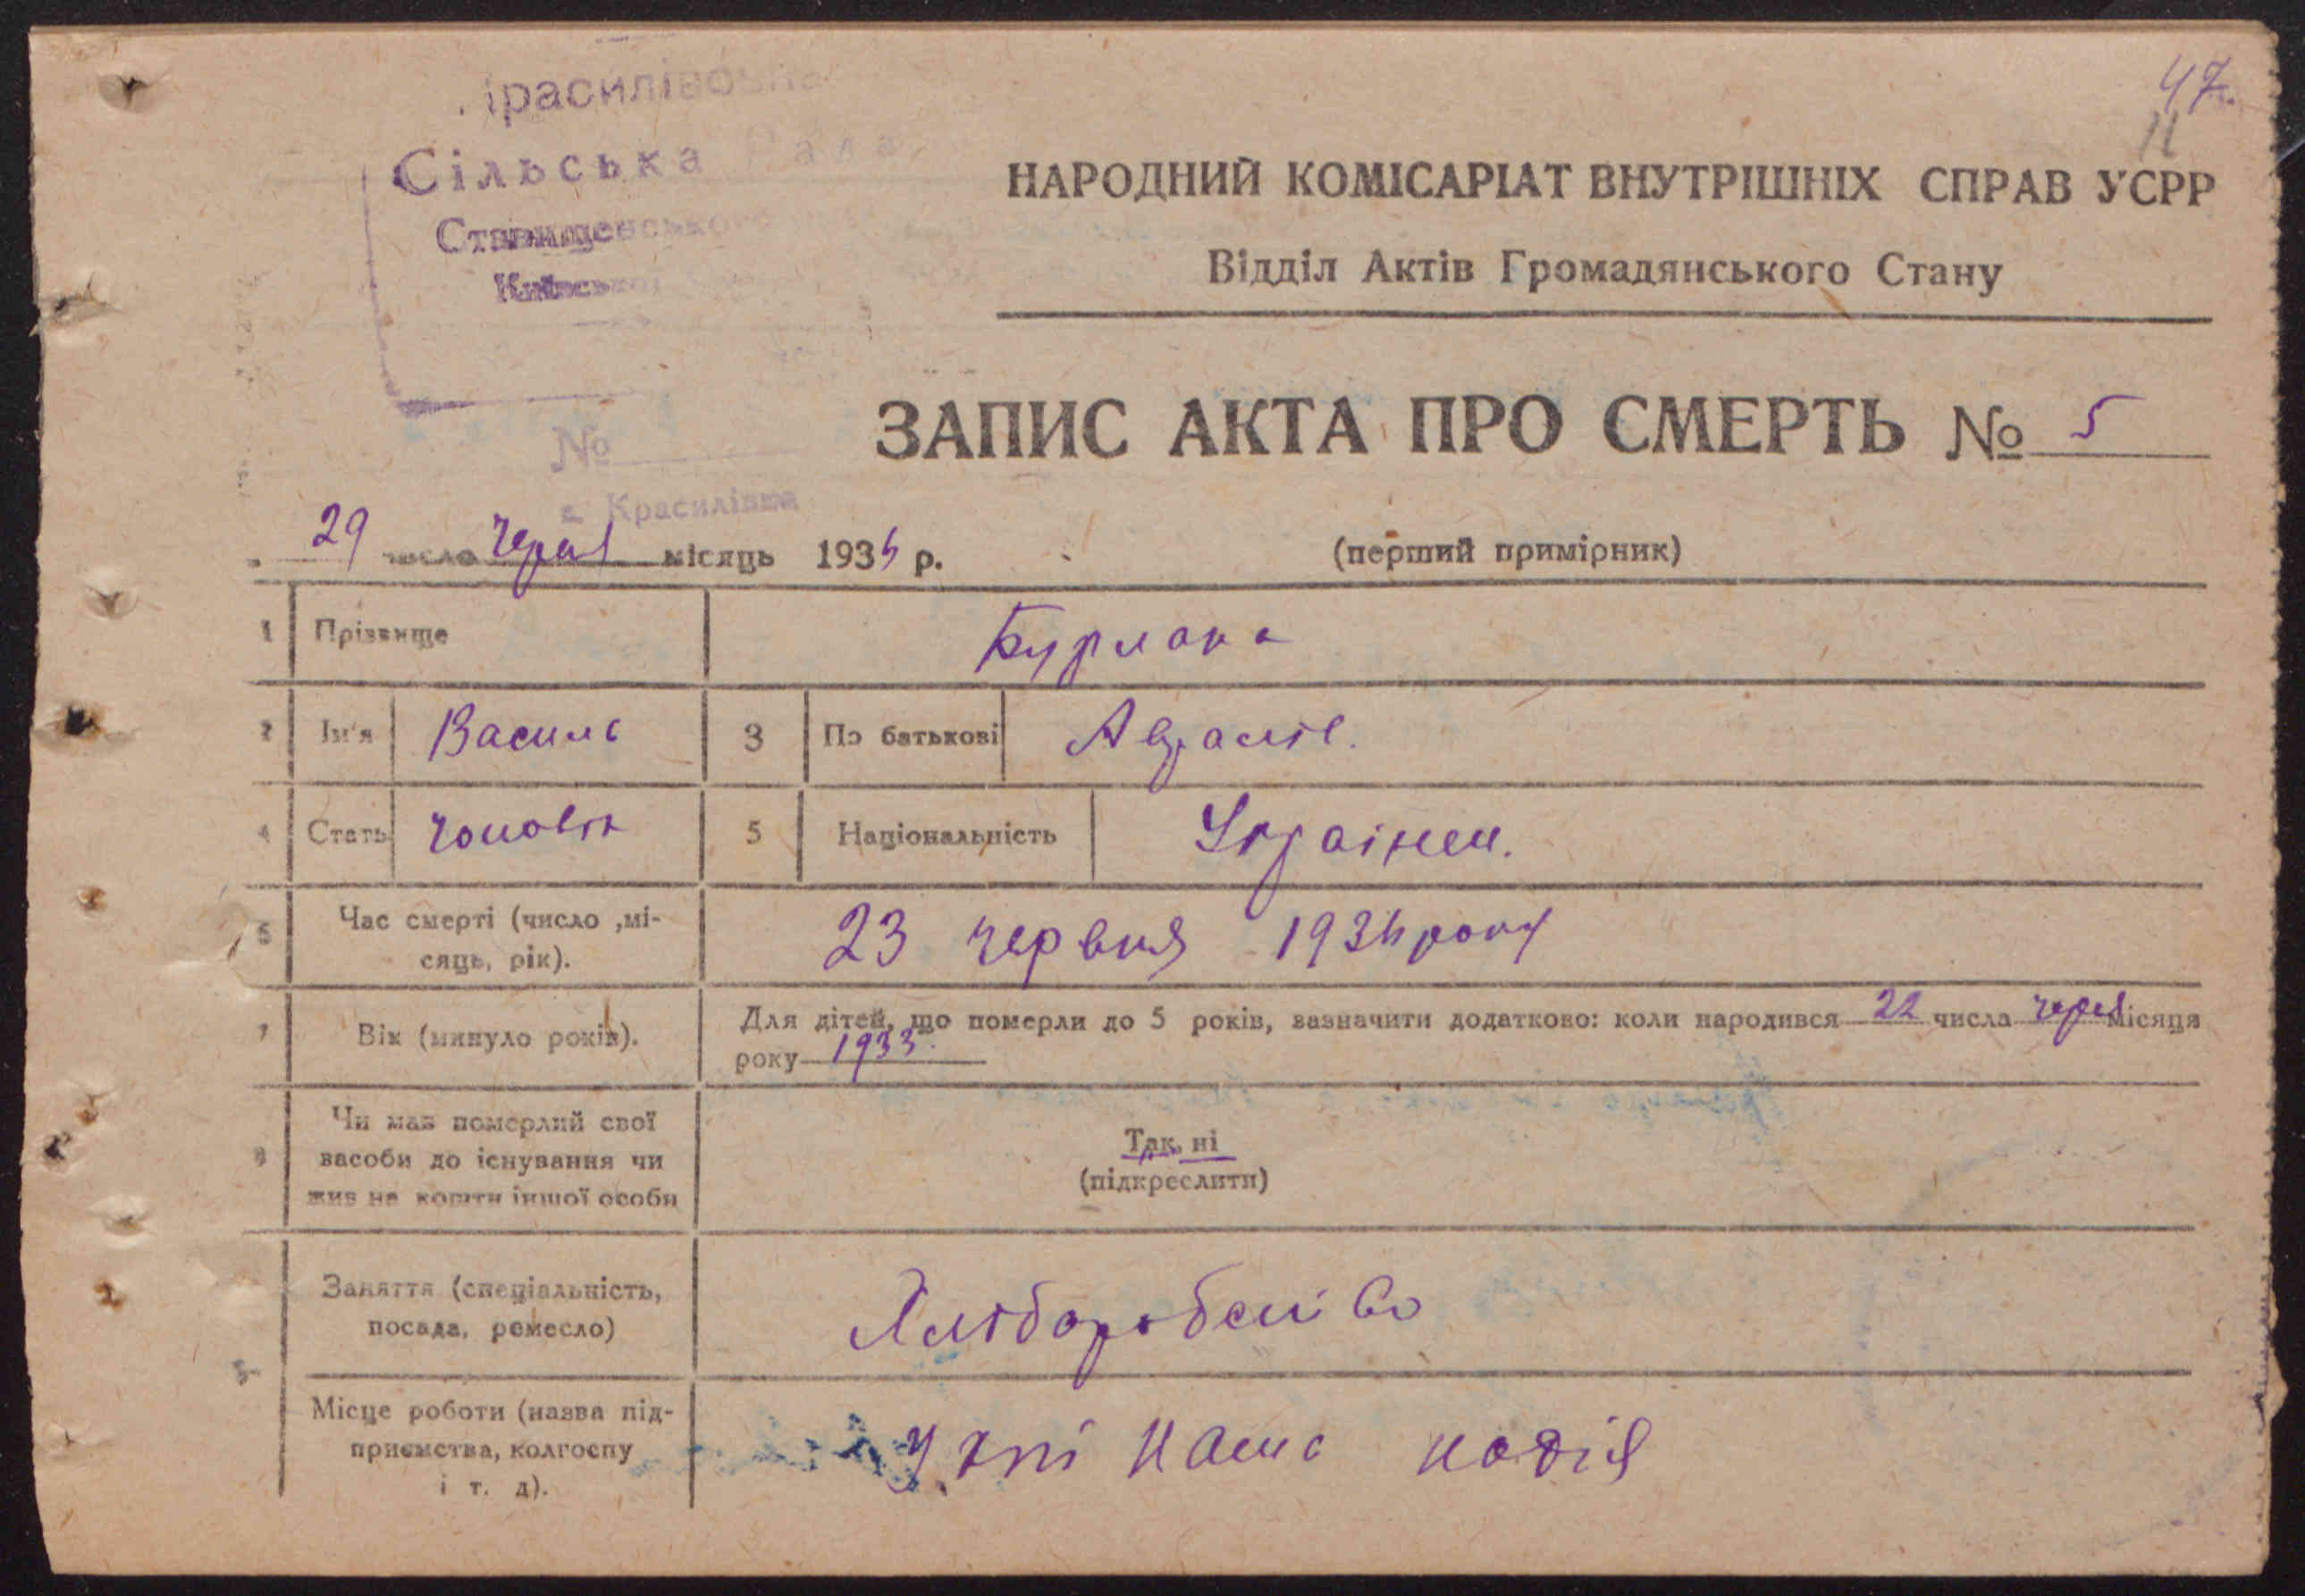 Красилівська
47.
Сільська Рада
11
Ставищевського
Київської
НАРОДНИЙ КОМІСАРІАТ ВНУТРІШНІХ СПРАВ УСРР
Відділ Актів Громадянського Стану
ЗАПИС АКТА ПРО СМЕРТЬ № 5
№
с. Красилівка
29 число червя місяць 1934 р.
(перший примірник)
1 Прізвище Бурлака
2 Ім'я Василь 3 По батькові Аврамів.
4 Стать чоловік 5 Національність Українец.
6 Час смерті (число ,мі-
сяць, рік). 23 червня 1934 року
7 Вік (минуло років). Для дітей, що померли до 5 років, зазначити додатково: коли народився 22 числа червя місяця
року 1933.
8 Чи мав померлий свої
засоби до існування чи
жив на кошти іншої особи
Так, ні
(підкреслити)
Заняття (спеціальність,
посада, ремесло) Хліборобство
Місце роботи (назва під-
приємства, колгоспу
і т. д).
Наша надія